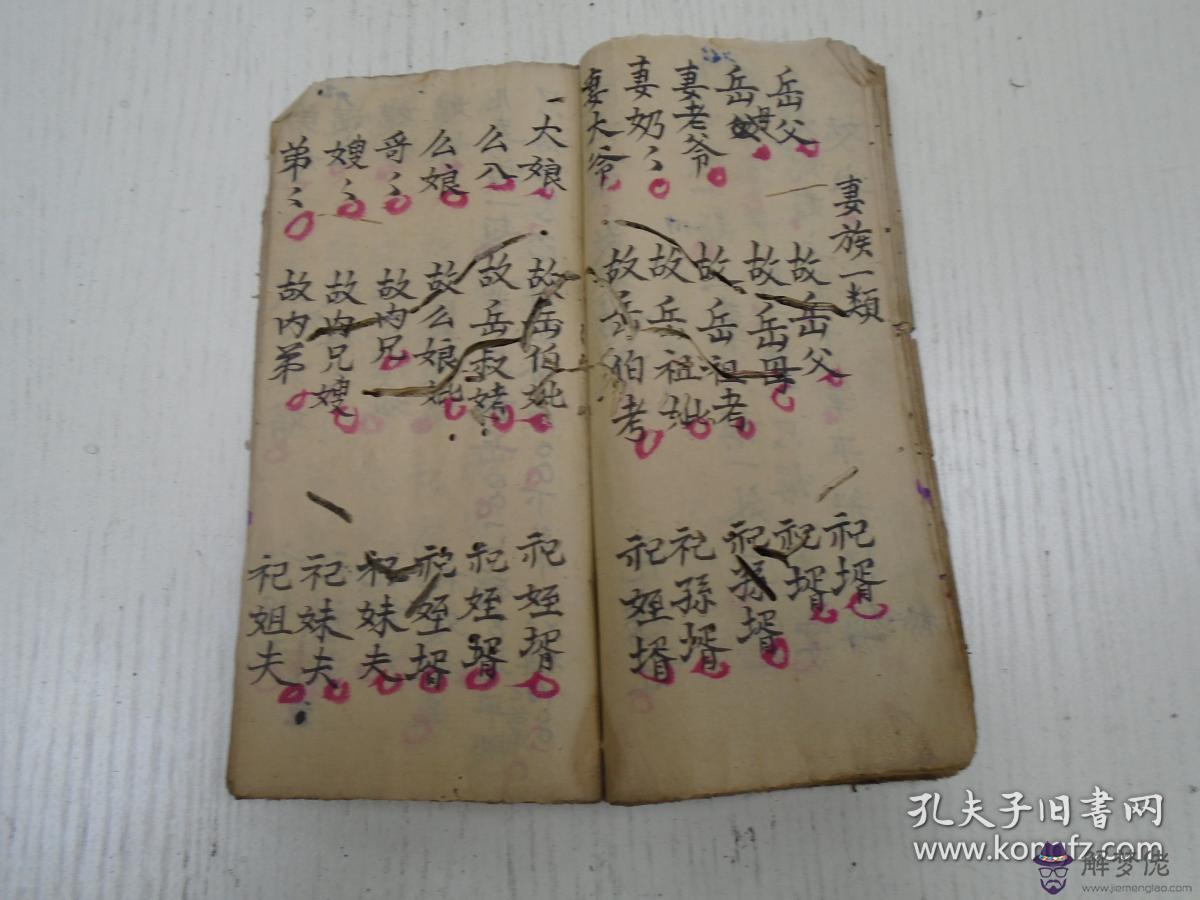 妻族一類
岳父 故岳父 祀壻
岳母 故岳母 祀壻
妻老爷 故岳祖考 祀孫壻
妻奶〻 故岳祖妣 祀孫壻
妻大爷 故岳伯考 祀姪壻
一大娘 故岳伯妣 祀姪壻
么八 故岳叔考 祀姪壻
么娘 故么娘妣 祀姪壻
哥〻 故内兄 祀妹夫
嫂〻 故内兄嫂 祀妹夫
弟〻 故内弟 祀姐夫
孔夫子旧书网
www.kongfz.com
解梦佬
www.jiemenglao.com